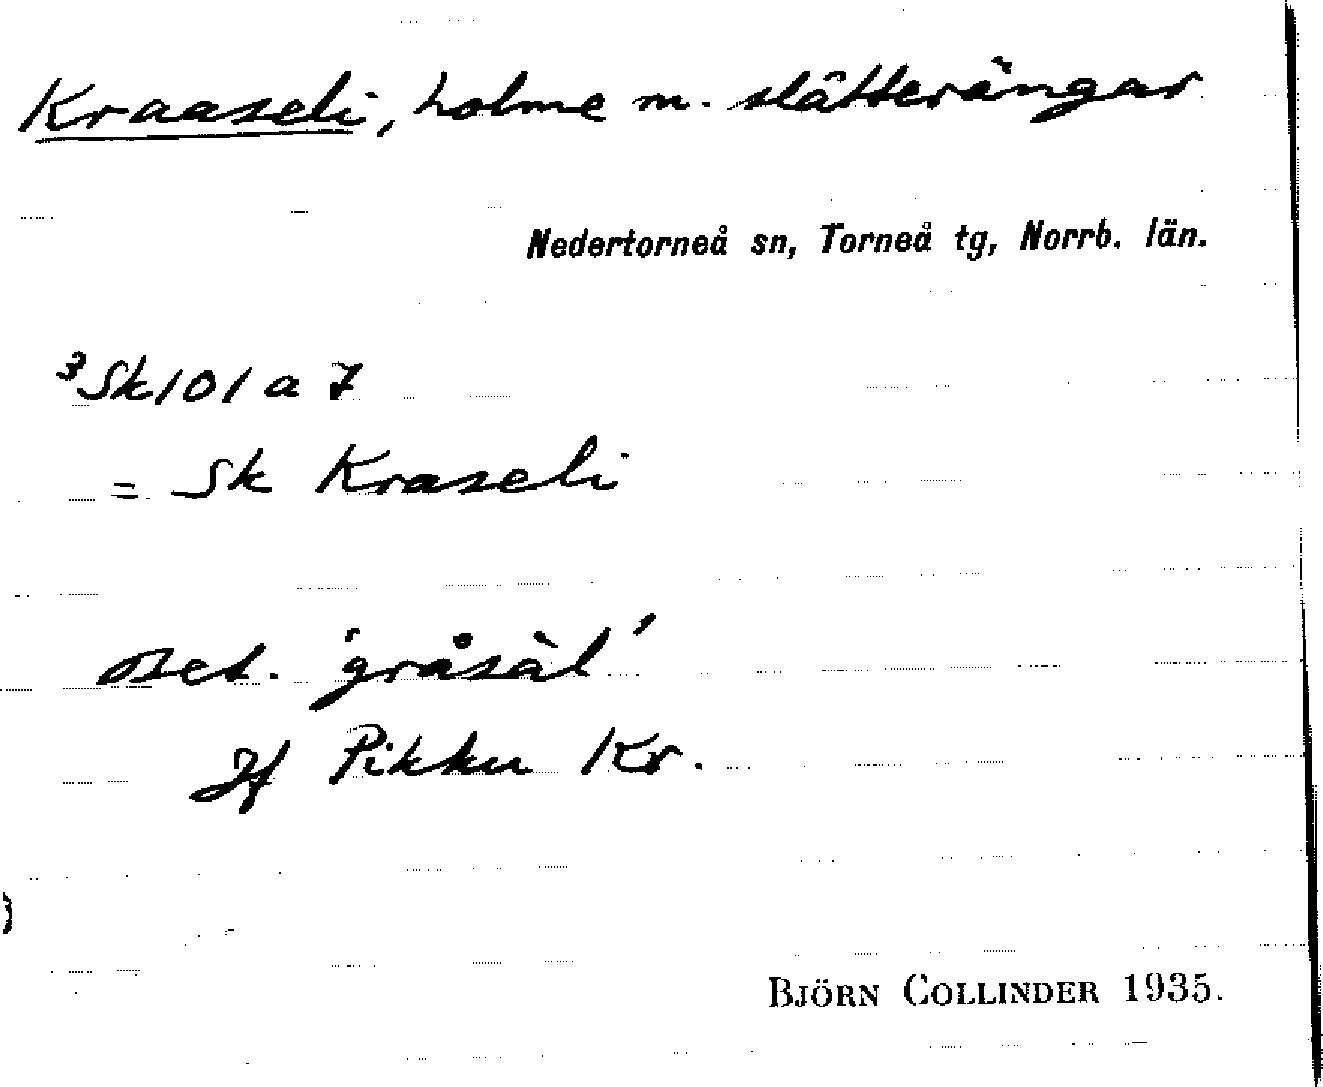 Kraaseli, holme m. slåtterängar
Nedertorneå sn, Torneå tg, Norrb. län.
³Sk101a7
= Sk Kraseli
bet. 'gråsäl'
Jf Pikku Kr.
BJÖRN COLLINDER 1935.